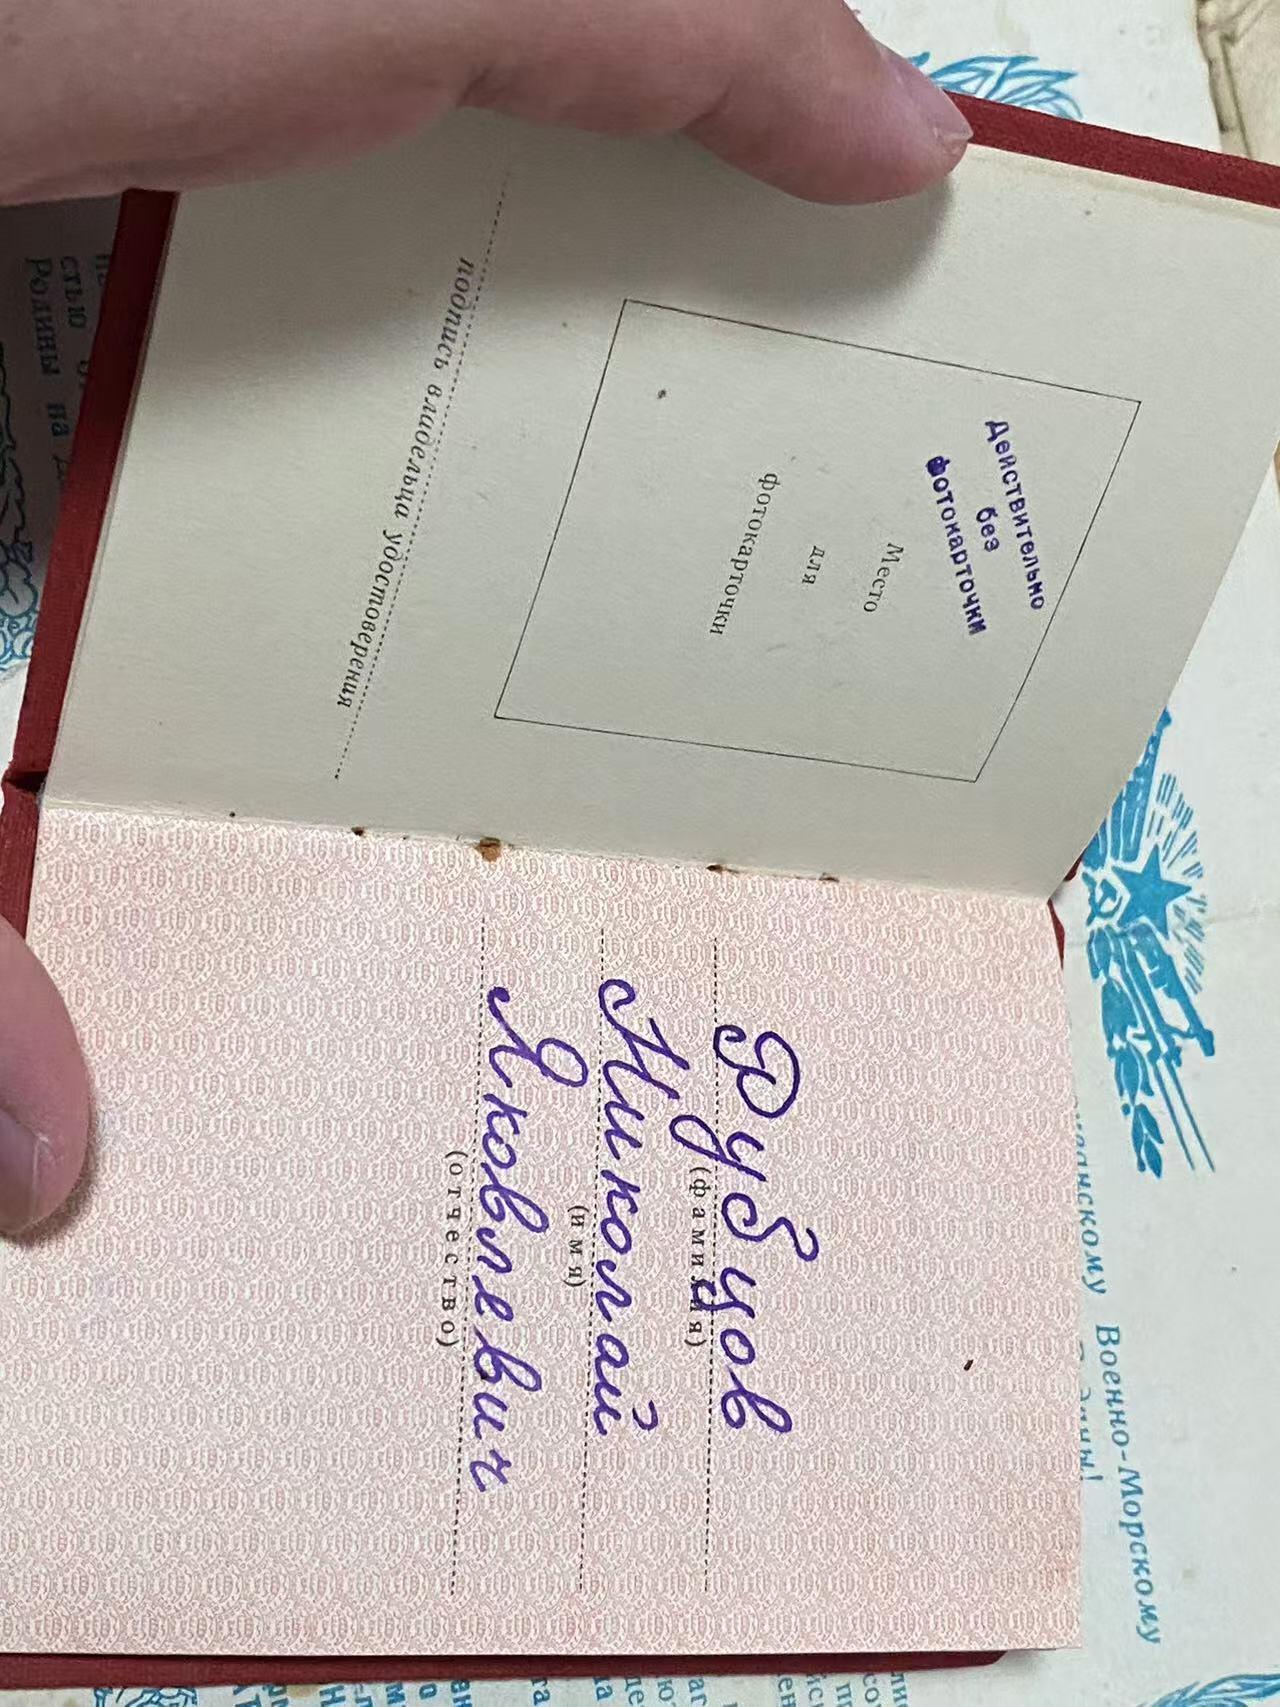 Действительно
без
фотокарточки
Место
для
фотокарточки
подпись владельца удостоверения
Рубцов
(фамилия)
Николай
(имя)
Яковлевич
(отчество)
Военно-Морскому
стью
Родины на